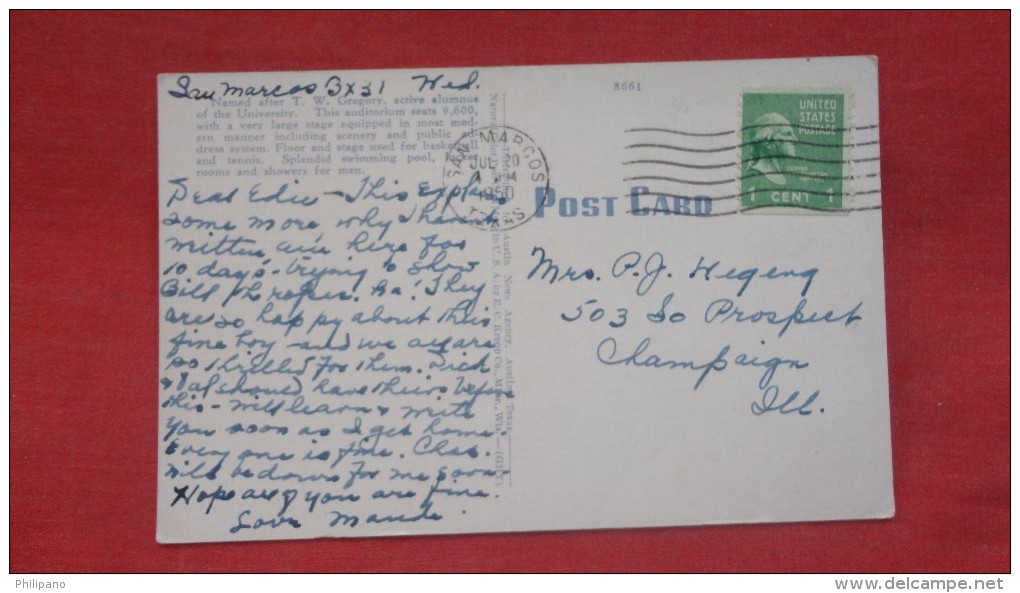 San Marcos Bx 31 Wed.
Named after T. W. Gregory, active alumnus
of the University. This auditorium seats 9,600,
with a very large stage equipped in most mod-
ern manner including scenery and public ad-
dress system. Floor and stage used for basketball
and tennis. Splendid swimming pool,
rooms and showers for men.
Dear Edie - This explains
some more why I haven't
written, am here for
10 days - trying to show
Bill the ropes. Ha! They
are so happy about this
fine boy - and we all are
so thrilled for them. Dick
& Val should have theirs before
this - will learn & write
you soon as I get home.
Every one is fine. Chas.
will be down for me soon -
Hope all of you are fine.
Love Maude.
Austin News Agency, Austin, Texas
in U. S. A. by E. C. Kropp Co., Milw., Wis.
8661
SAN MARCOS
JUL 20
1950
TEXAS
UNITED
STATES
POSTAGE
1 CENT 1
POST CARD
Mrs. P. J. Hegeng
503 So Prospect
Champaign
Ill.
Philipano
www.delcampe.net